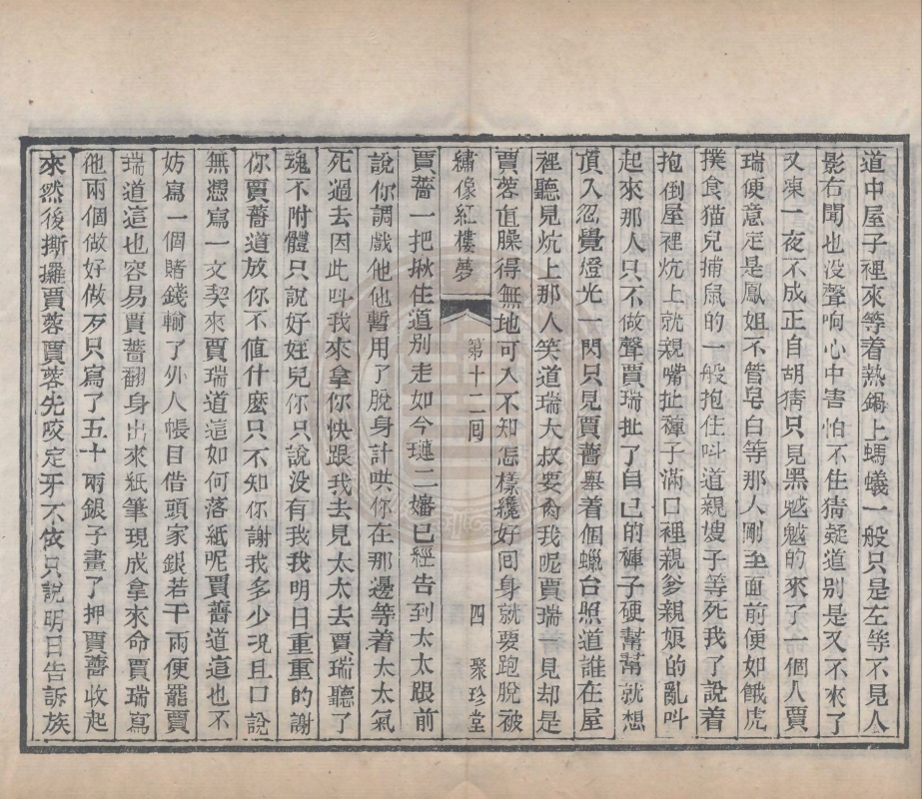 道中屋子裡來等着熱鍋上螞蟻一般只是左等不見人
影右聞也没聲响心中害怕不住猜疑道别是又不來了
又凍一夜不成正自胡猜只見黑魆魆的來了一個人賈
瑞便意定是鳳姐不管皂白等那人剛至面前便如餓虎
撲食猫兒捕鼠的一般抱住叫道親嫂子等死我了說着
抱倒屋裡炕上就親嘴扯褲子滿口裡親爹親娘的亂叫
起來那人只不做聲賈瑞扯了自己的褲子硬幫幫就想
頂入忽覺燈光一閃只見賈薔舉着個蠟台照道誰在屋
裡聽見炕上那人笑道瑞大叔要肏我呢賈瑞一見却是
賈蓉直臊得無地可入不知怎樣纔好囘身就要跑脫被
繡像紅樓夢 第十二囘 四 聚珍堂
賈薔一把揪住道别走如今璉二嬸已經告到太太跟前
說你調戲他他暫用了脫身計哄你在那邊等着太太氣
死過去因此叫我來拿你快跟我去見太太去賈瑞聽了
魂不附體只說好姪兒你只說没有我我明日重重的謝
你賈薔道放你不值什麽只不知你謝我多少况且口說
無憑寫一文契來賈瑞道這如何落紙呢賈薔道這也不
妨寫一個賭錢輸了外人帳目借頭家銀若干兩便罷賈
瑞道這也容易賈薔翻身出來紙筆現成拿來命賈瑞寫
他兩個做好做歹只寫了五十兩銀子畫了押賈薔收起
來然後撕攞賈蓉賈蓉先咬定牙不依只說明日告訴族